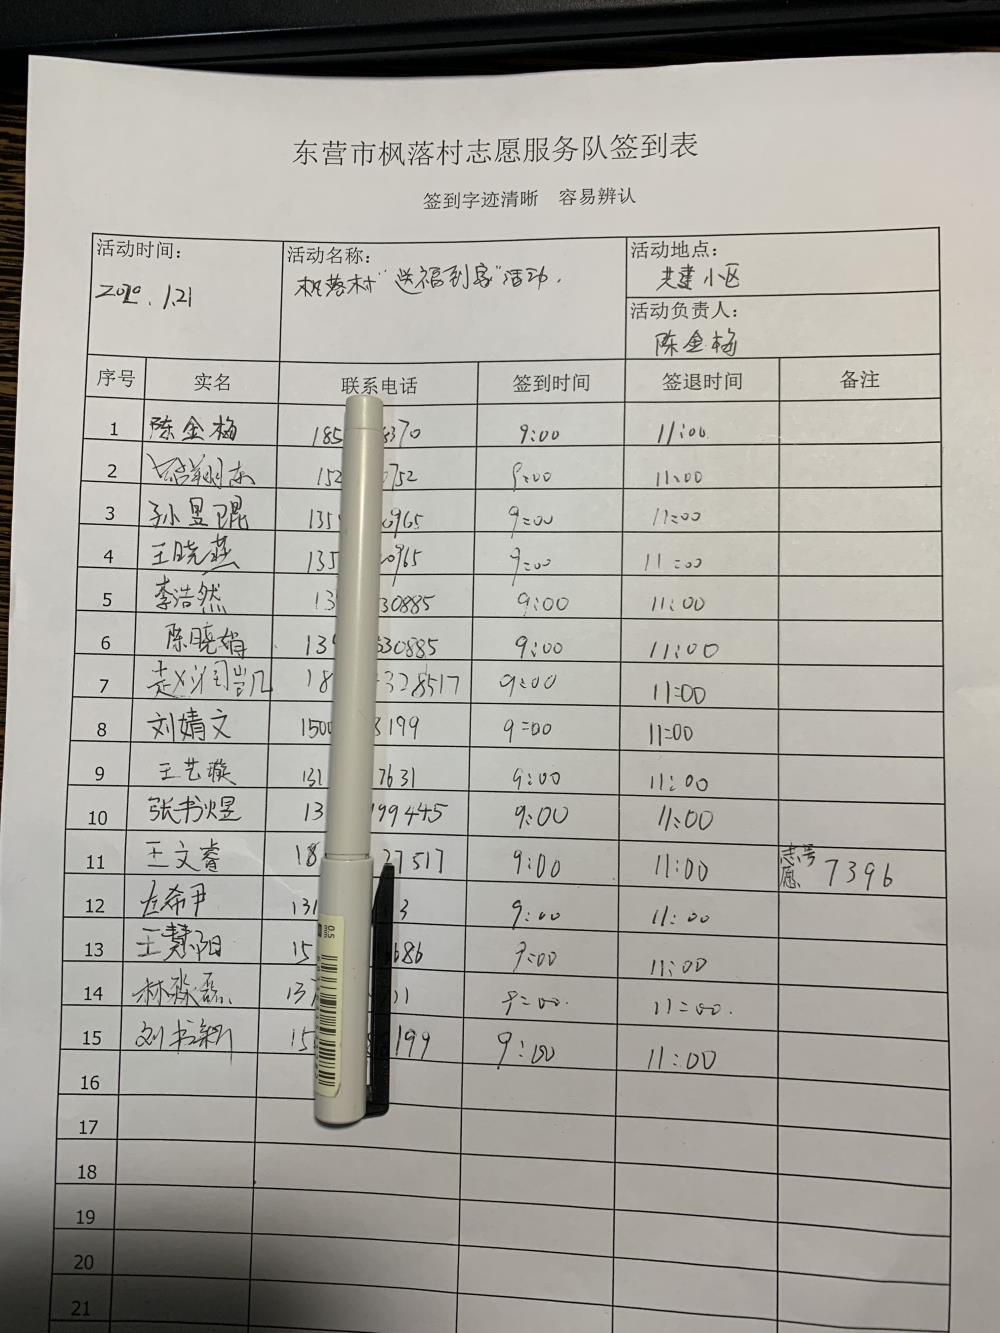 东营市枫落村志愿服务队签到表
签到字迹清晰 容易辨认
活动时间: 活动名称: 活动地点:
2020.1.21 枫落村“送福到家”活动. 共建小区
活动负责人:
陈金梅
序号 实名 联系电话 签到时间 签退时间 备注
1 陈金梅 185 8370 9:00 11:00
2 152 0752 9:00 11:00
3 孙昱琨 135 0965 9:00 11:00
4 王晓燕 135 0965 9:00 11:00
5 李浩然 13 30885 9:00 11:00
6 陈晓娟 135 30885 9:00 11:00
7 赵润凯 18 328517 9:00 11:00
8 刘婧文 1500 3199 9:00 11:00
9 王艺璇 131 7631 9:00 11:00
10 张书煜 13 199445 9:00 11:00
11 王文睿 18 27517 9:00 11:00 志愿号 7396
12 左希尹 131 3 9:00 11:00
13 王慧阳 15 6686 9:00 11:00
14 林淼磊 137 11 9:00. 11:00.
15 刘书 15 199 9:00 11:00
16
17
18
19
20
21
0.5